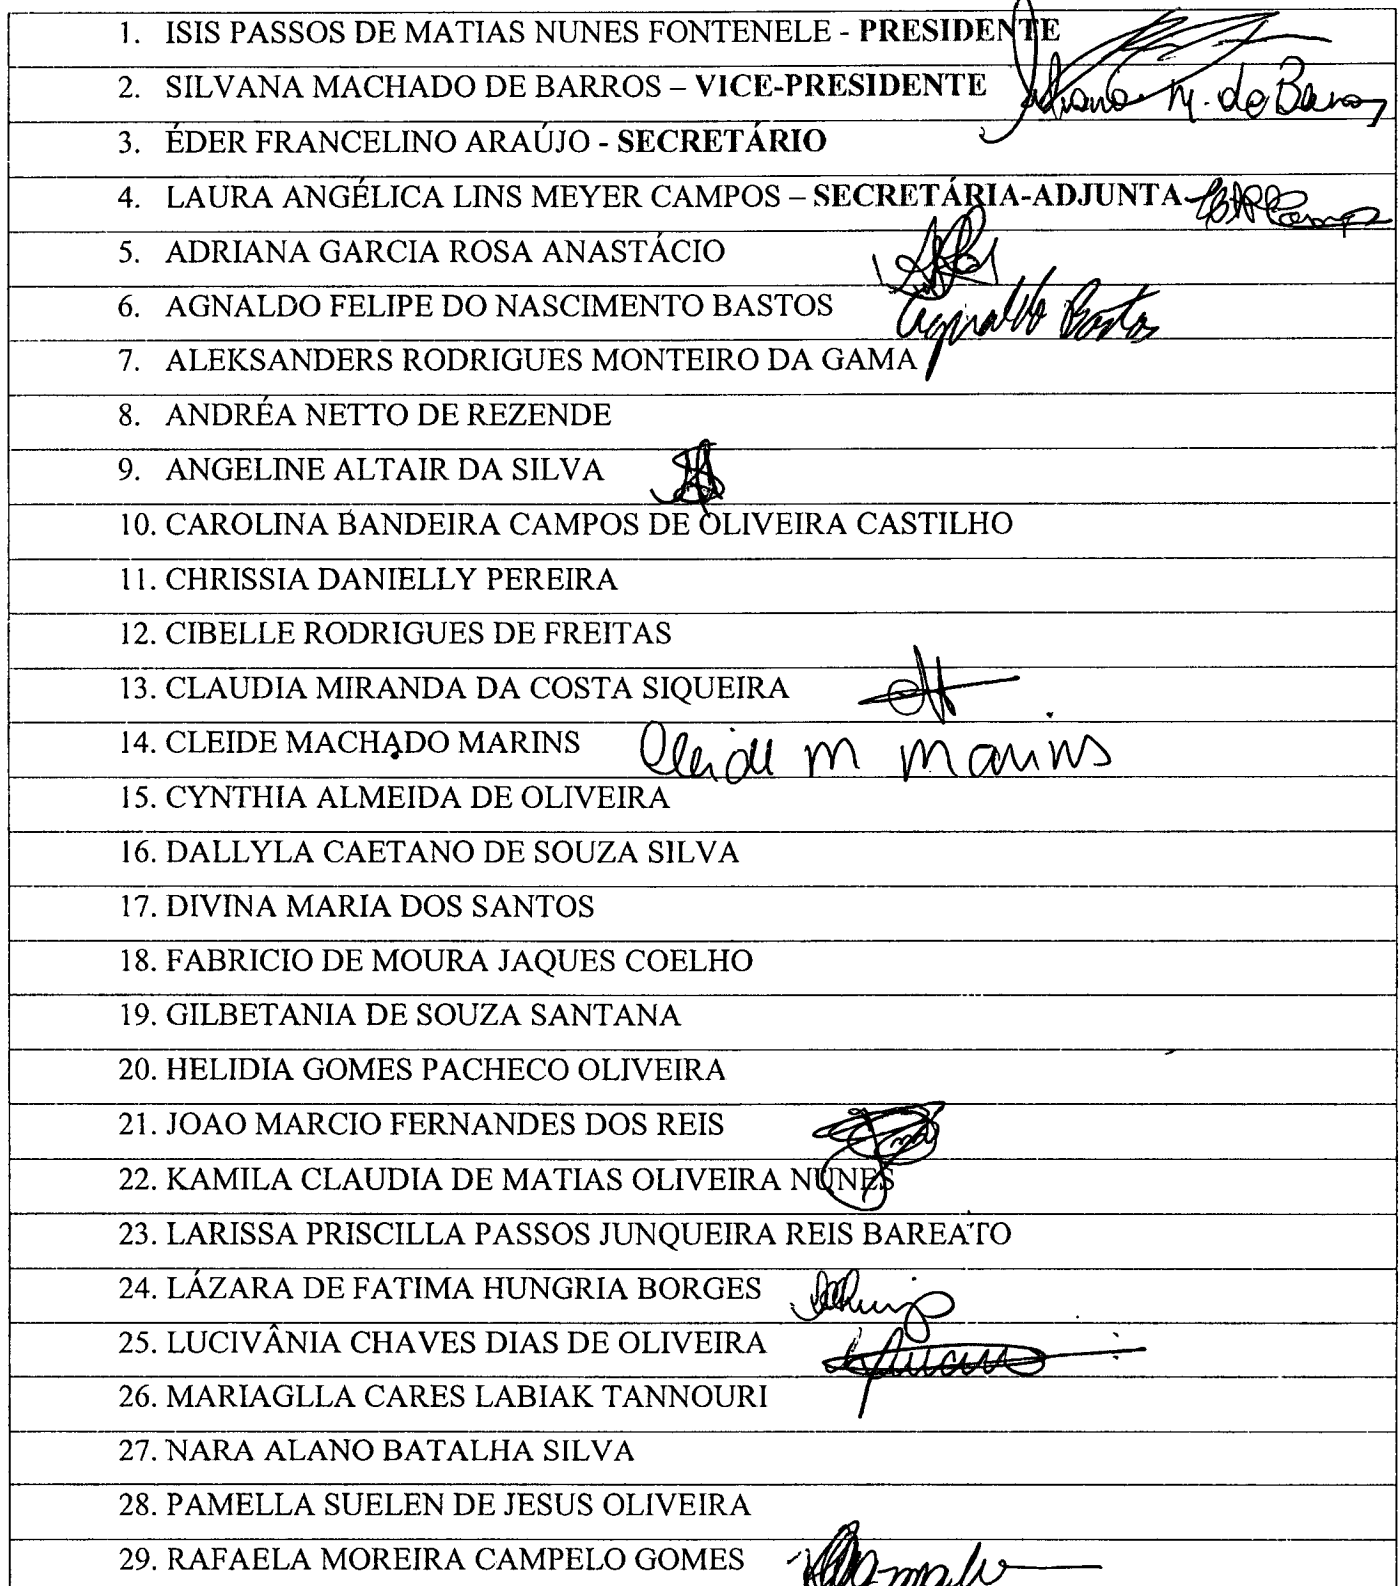 1. ISIS PASSOS DE MATIAS NUNES FONTENELE - PRESIDENTE
2. SILVANA MACHADO DE BARROS – VICE-PRESIDENTE Silvana M. de Barros
3. ÉDER FRANCELINO ARAÚJO - SECRETÁRIO
4. LAURA ANGÉLICA LINS MEYER CAMPOS – SECRETÁRIA-ADJUNTA
5. ADRIANA GARCIA ROSA ANASTÁCIO
6. AGNALDO FELIPE DO NASCIMENTO BASTOS Agnaldo Bastos
7. ALEKSANDERS RODRIGUES MONTEIRO DA GAMA
8. ANDRÉA NETTO DE REZENDE
9. ANGELINE ALTAIR DA SILVA
10. CAROLINA BANDEIRA CAMPOS DE OLIVEIRA CASTILHO
11. CHRISSIA DANIELLY PEREIRA
12. CIBELLE RODRIGUES DE FREITAS
13. CLAUDIA MIRANDA DA COSTA SIQUEIRA
14. CLEIDE MACHADO MARINS Cleide M Marins
15. CYNTHIA ALMEIDA DE OLIVEIRA
16. DALLYLA CAETANO DE SOUZA SILVA
17. DIVINA MARIA DOS SANTOS
18. FABRICIO DE MOURA JAQUES COELHO
19. GILBETANIA DE SOUZA SANTANA
20. HELIDIA GOMES PACHECO OLIVEIRA
21. JOAO MARCIO FERNANDES DOS REIS
22. KAMILA CLAUDIA DE MATIAS OLIVEIRA NUNES
23. LARISSA PRISCILLA PASSOS JUNQUEIRA REIS BAREATO
24. LÁZARA DE FATIMA HUNGRIA BORGES
25. LUCIVÂNIA CHAVES DIAS DE OLIVEIRA
26. MARIAGLLA CARES LABIAK TANNOURI
27. NARA ALANO BATALHA SILVA
28. PAMELLA SUELEN DE JESUS OLIVEIRA
29. RAFAELA MOREIRA CAMPELO GOMES